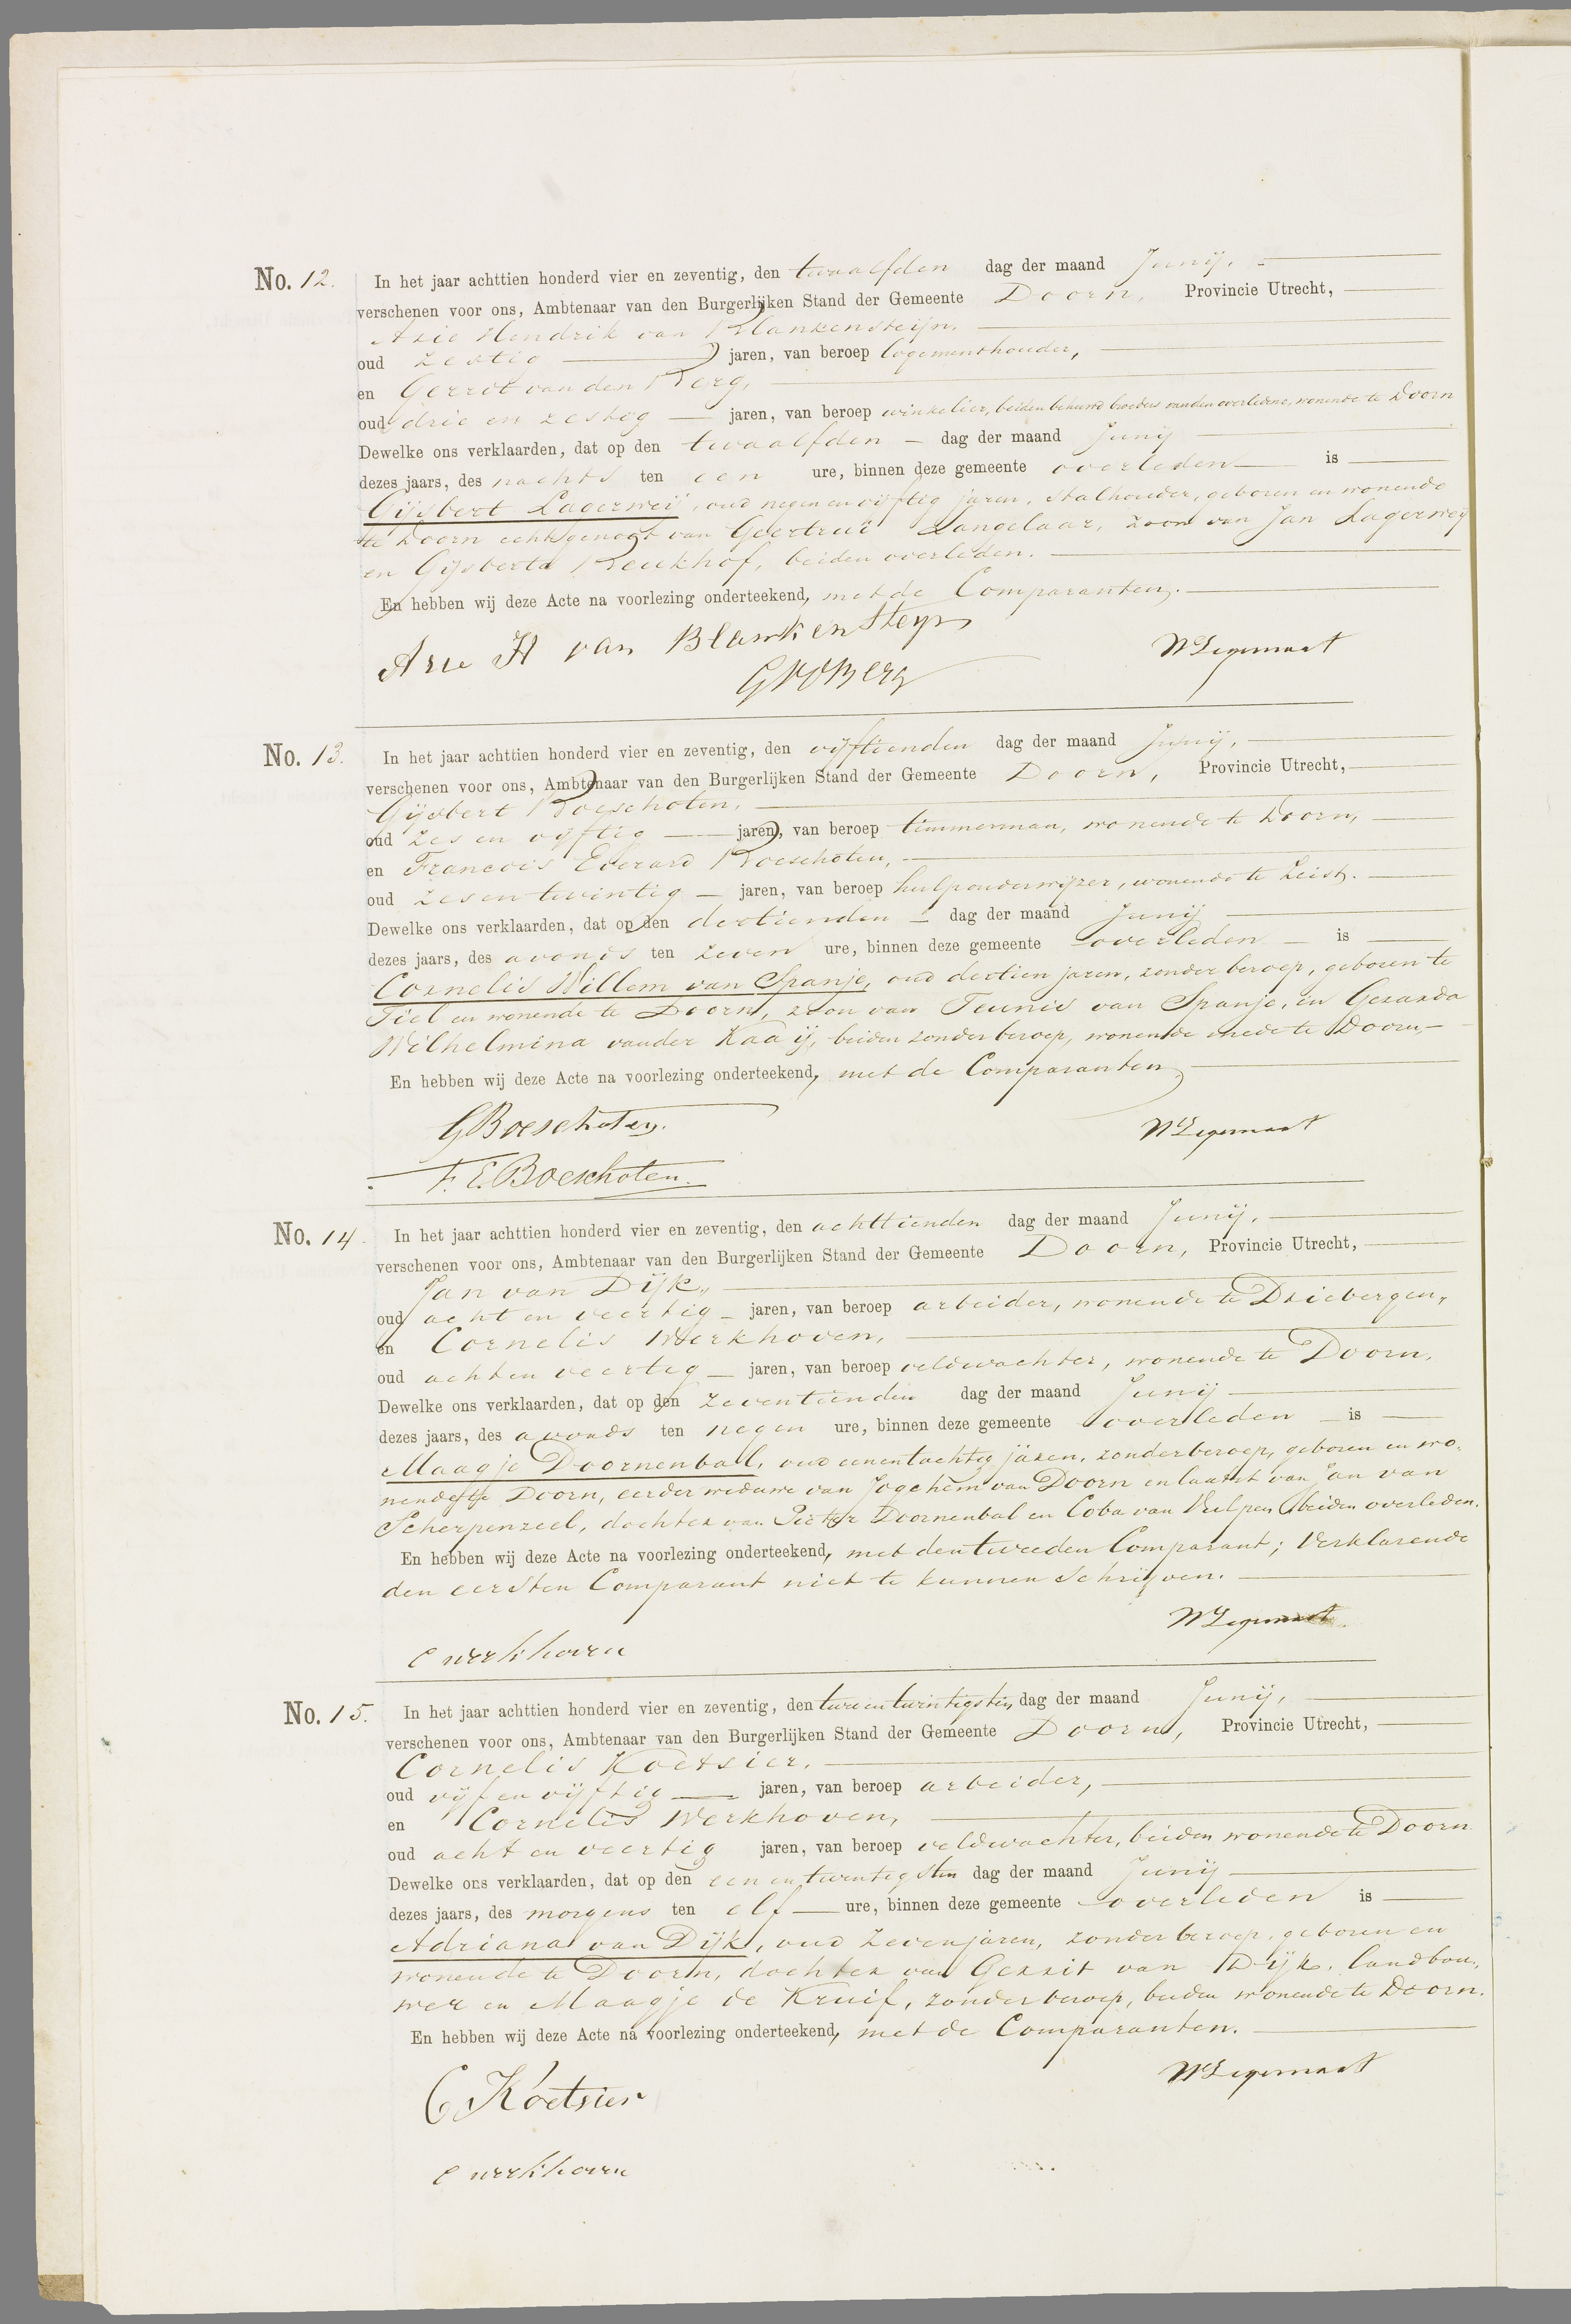 No. 12. In het jaar achttien honderd vier en zeventig, den twaalfden dag der maand Junij.
verschenen voor ons, Ambtenaar van den Burgerlijken Stand der Gemeente Doorn, Provincie Utrecht,
Arie Hendrik van Blankensteijn,
oud zestig jaren, van beroep logementhouder,
en Gerrit van den Berg,
oud drie en zestig jaren, van beroep winkelier, beiden behuwd broeders van den overledene, wonende te Doorn
Dewelke ons verklaarden, dat op den twaalfden dag der maand Junij
dezes jaars, des nachts ten een ure, binnen deze gemeente overleden is
Gijsbert Lagerweij, oud negen en vijftig jaren, stalhouder, geboren en wonende
te Doorn echtgenoot van Geertrui Langelaar, zoon van Jan Lagerweij
en Gijsberta Beukhof, beiden overleden.
En hebben wij deze Acte na voorlezing onderteekend, met de Comparanten.
Arie H van Blankensteyn
GVDBerg
No. 13. In het jaar achttien honderd vier en zeventig, den vijftienden dag der maand Junij,
verschenen voor ons, Ambtenaar van den Burgerlijken Stand der Gemeente Doorn, Provincie Utrecht,
Gijsbert Boeschoten,
oud zes en vijftig jaren, van beroep timmerman, wonende te Doorn,
en Francois Everard Boeschoten,
oud zes en twintig jaren, van beroep hulponderwijzer, wonende te Zeist.
Dewelke ons verklaarden, dat op den dertienden dag der maand Junij
dezes jaars, des avonds ten zeven ure, binnen deze gemeente overleden is
Cornelis Willem van Spanje, oud dertien jaren, zonder beroep, geboren te
Tiel en wonende te Doorn, zoon van Teunis van Spanje, en Gerarda
Wilhelmina van der Kaaij, beiden zonder beroep, wonende mede te Doorn,
En hebben wij deze Acte na voorlezing onderteekend, met de Comparanten
GBoeschoten. WLegemaat
F. E. Boeschoten.
No. 14. In het jaar achttien honderd vier en zeventig, den achttienden dag der maand Junij,
verschenen voor ons, Ambtenaar van den Burgerlijken Stand der Gemeente Doorn, Provincie Utrecht,
Jan van Dijk,
oud acht en veertig jaren, van beroep arbeider, wonende te Driebergen,
en Cornelis Werkhoven,
oud acht en veertig jaren, van beroep veldwachter, wonende te Doorn,
Dewelke ons verklaarden, dat op den zeventienden dag der maand Junij
dezes jaars, des avonds ten negen ure, binnen deze gemeente overleden is
Maagje Doornenball, oud een en tachtig jaren, zonder beroep, geboren en wo-
nende te Doorn, eerder weduwe van Jogchem van Doorn en laatst van Jan van
Scherpenzeel, dochter van Pieter Doornenbal en Coba van Vulpen beiden overleden.
En hebben wij deze Acte na voorlezing onderteekend, met den tweeden Comparant; Verklarende
den eersten Comparant niet te kunnen schrijven.
WLegemaat
C werkhoven
No. 15. In het jaar achttien honderd vier en zeventig, den twee en twintigsten dag der maand Junij,
verschenen voor ons, Ambtenaar van den Burgerlijken Stand der Gemeente Doorn, Provincie Utrecht,
Cornelis Koetsier,
oud vijf en vijftig jaren, van beroep arbeider,
en Cornelis Werkhoven,
oud acht en veertig jaren, van beroep veldwachter, beiden wonende te Doorn
Dewelke ons verklaarden, dat op den een en twintigsten dag der maand Junij
dezes jaars, des morgens ten elf ure, binnen deze gemeente overleden is
Adriana van Dijk, oud zeven jaren, zonder beroep, geboren en
wonende te Doorn, dochter van Gerrit van Dijk, landbou-
wer en Maagje de Kruif, zonder beroep, beiden wonende te Doorn.
En hebben wij deze Acte na voorlezing onderteekend, met de Comparanten.
WLegemaat
C Koetsier
C werkhoven